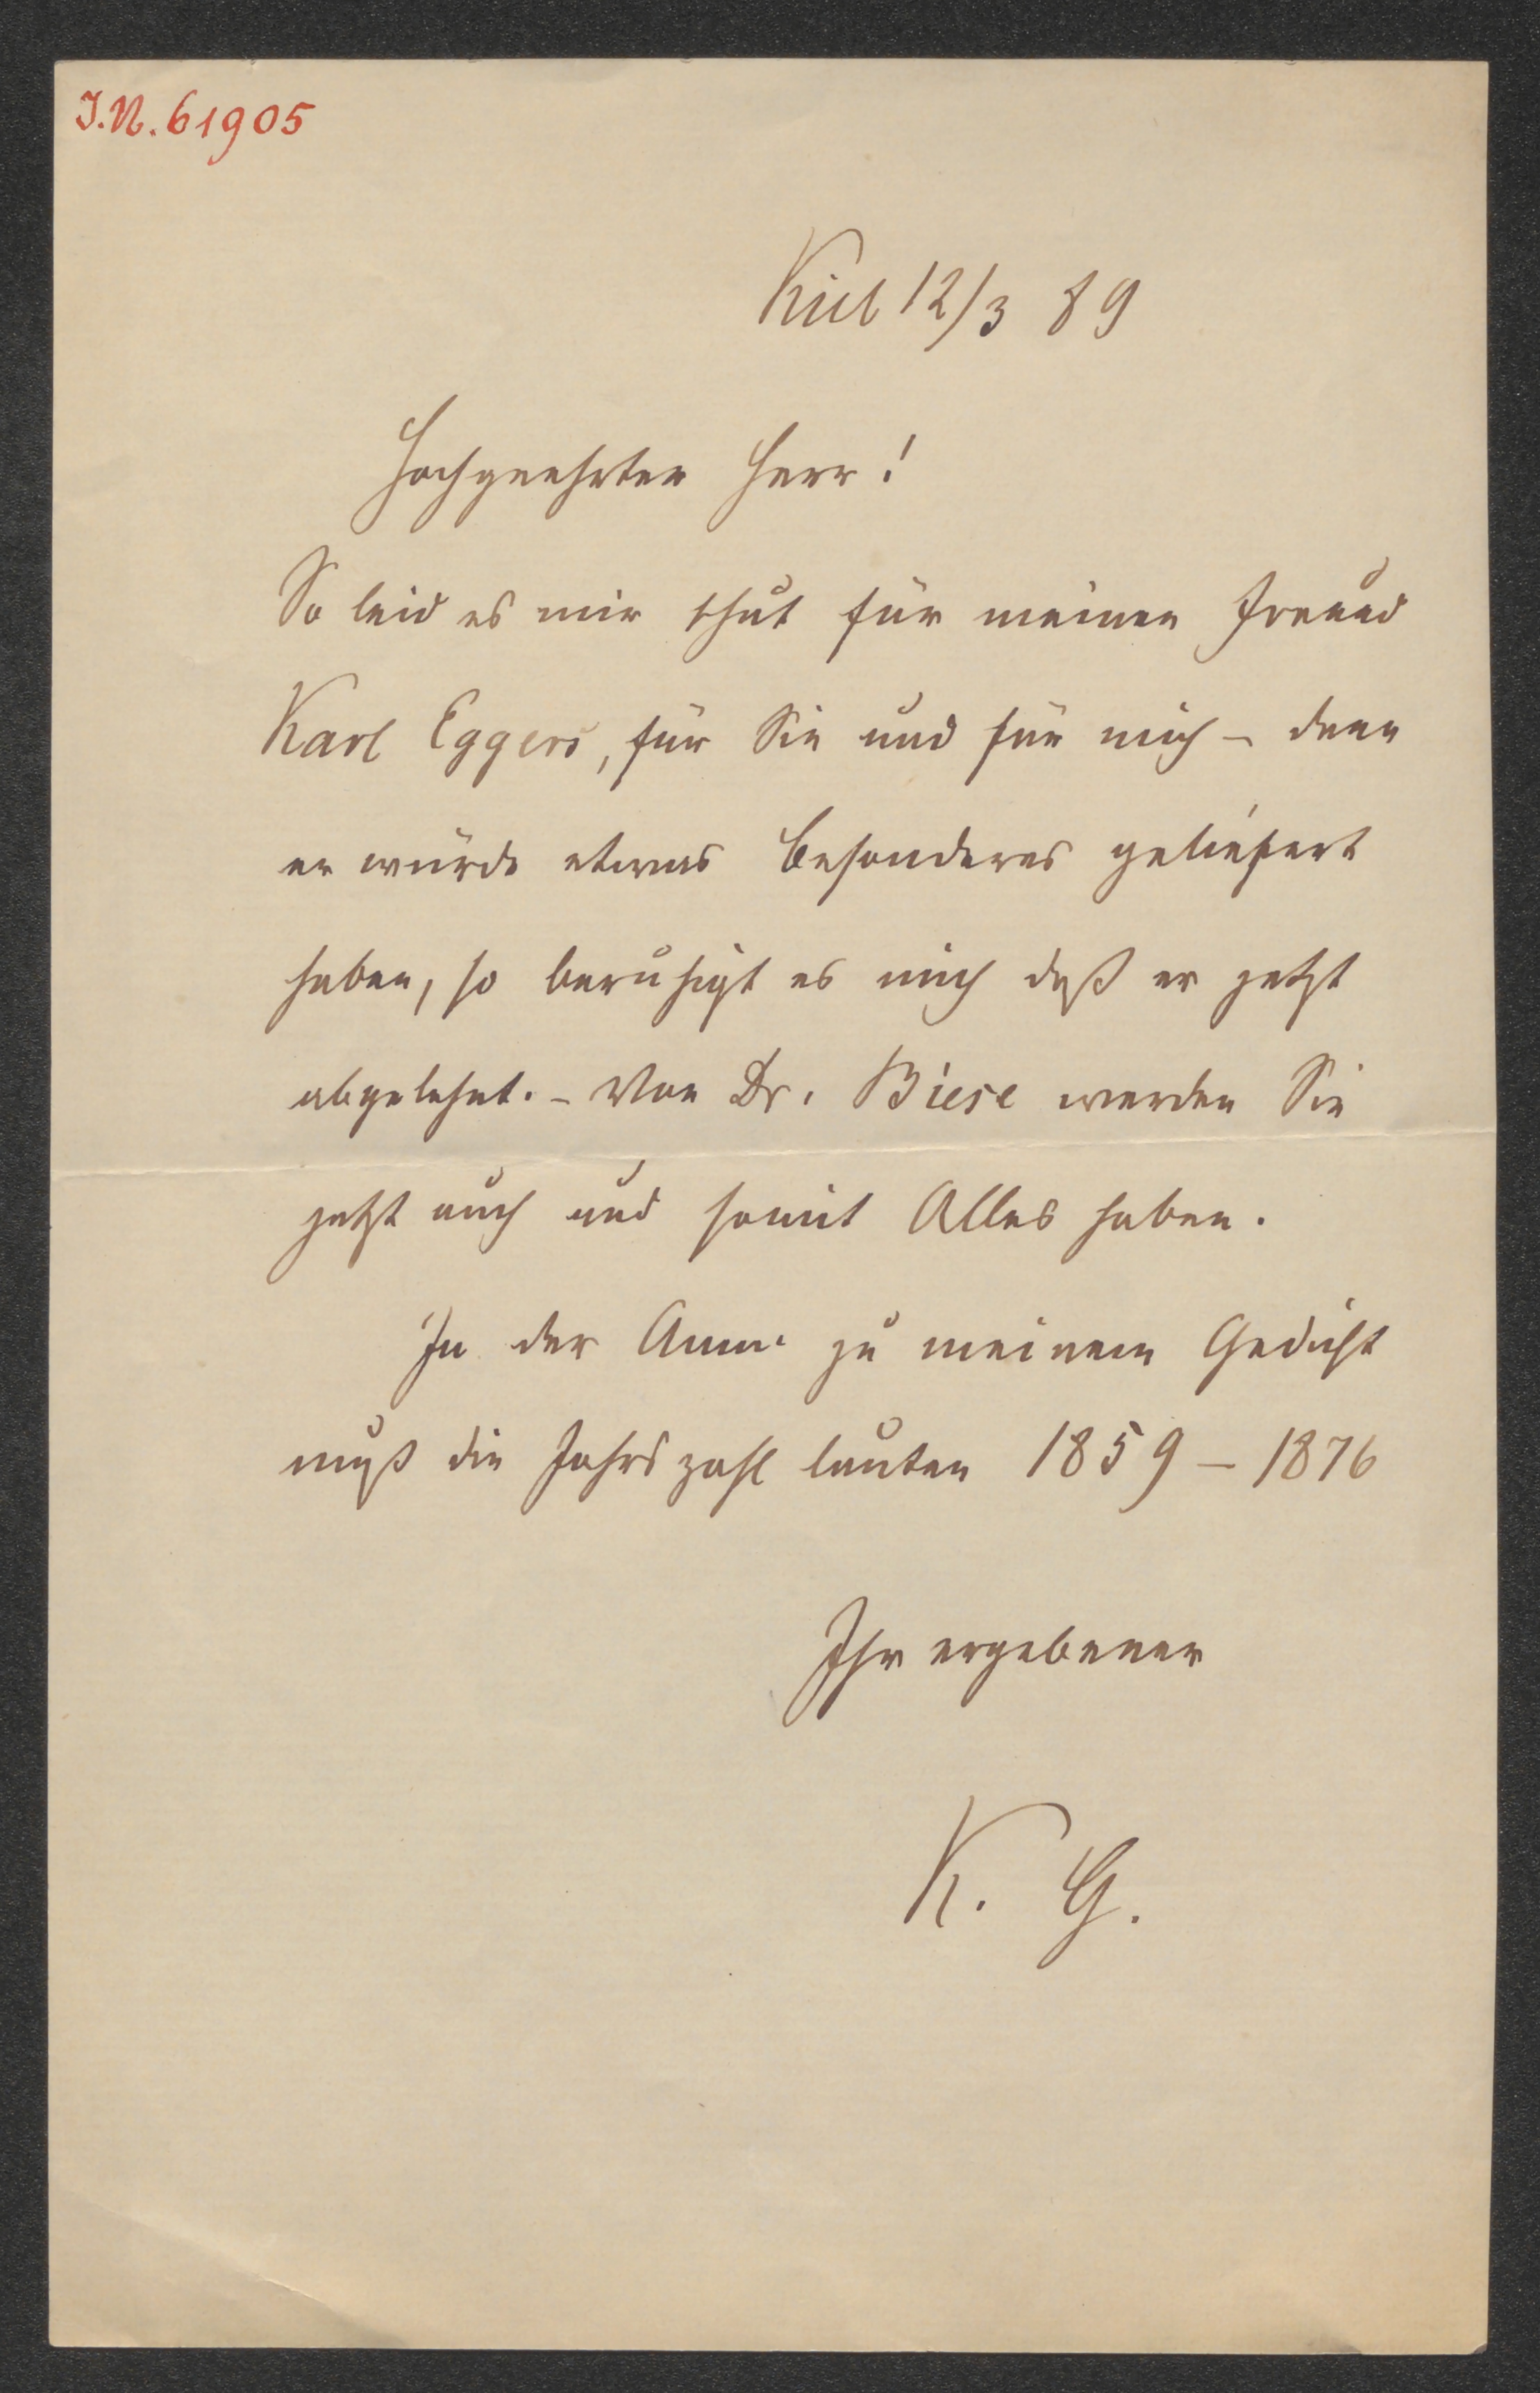 J.N. 61905
Kiel 12/3 89
Hochgeehrter Herr!
So leid es mir thut für meinen Freund
Karl Eggers, für Sie und für mich – denn
er würde etwas Besonderes geliefert
haben, so beruhigt es mich daß er jetzt
abgelehnt. – Von Dr. Biese werden Sie
jetzt auch und somit Alles haben.
In der Anm. zu meinem Gedicht
muß die Jahrszahl lauten 1859 – 1876
Ihr ergebener
K. G.